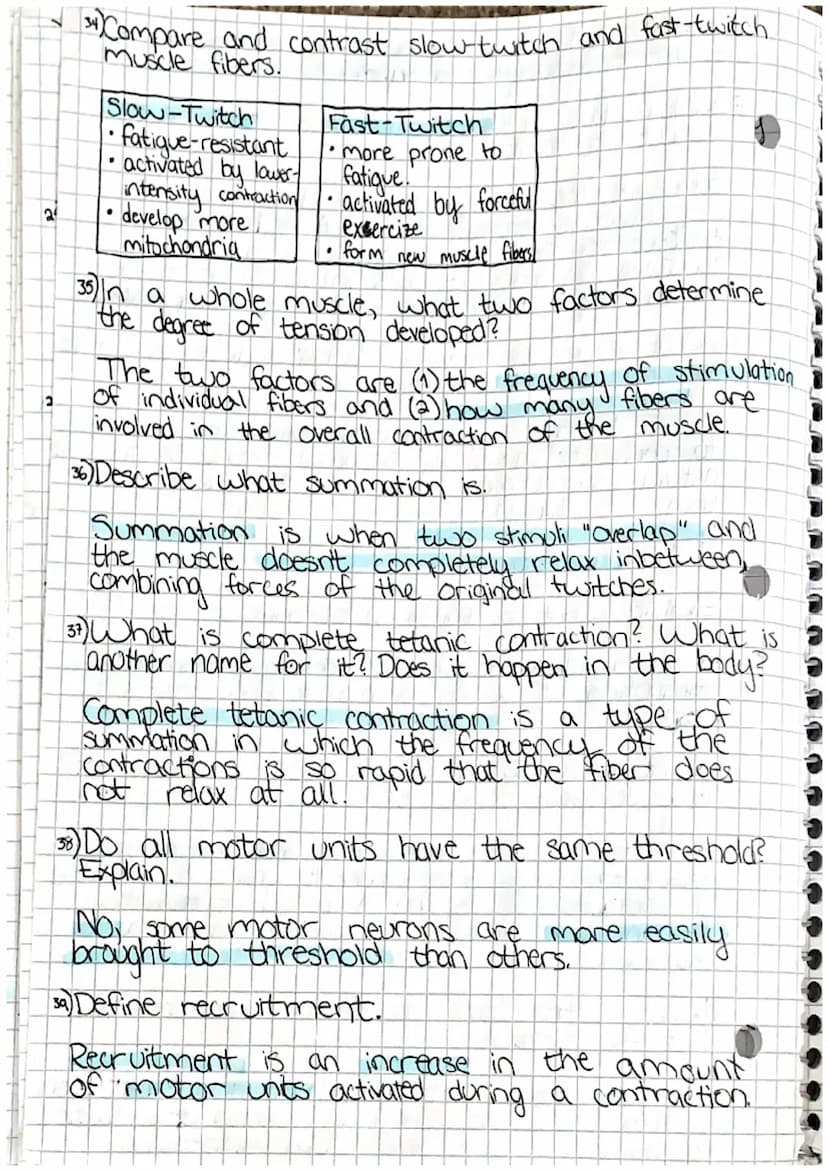 34) Compare and contrast slow-twitch and fast-twitch
muscle fibers.
Slow-Twitch
• fatigue-resistant
• activated by lower-
intensity contraction
• develop more
mitochondria
Fast-Twitch
• more prone to
fatigue.
• activated by forceful
excercize
• form new muscle fibers
35) In a whole muscle, what two factors determine
the degree of tension developed?
The two factors are (1) the frequency of stimulation
of individual fibers and (2) how many fibers are
involved in the overall contraction of the muscle.
36) Describe what summation is.
Summation is when two stimuli "overlap" and
the muscle doesn't completely relax inbetween,
combining forces of the original twitches.
37) What is complete tetanic contraction? What is
another name for it? Does it happen in the body?
Complete tetanic contraction is a type of
summation in which the frequency of the
contractions is so rapid that the fiber does
not relax at all.
38) Do all motor units have the same threshold?
Explain.
No, some motor neurons are more easily
brought to threshold than others.
39) Define recruitment.
Recruitment is an increase in the amount
of motor units activated during a contraction.